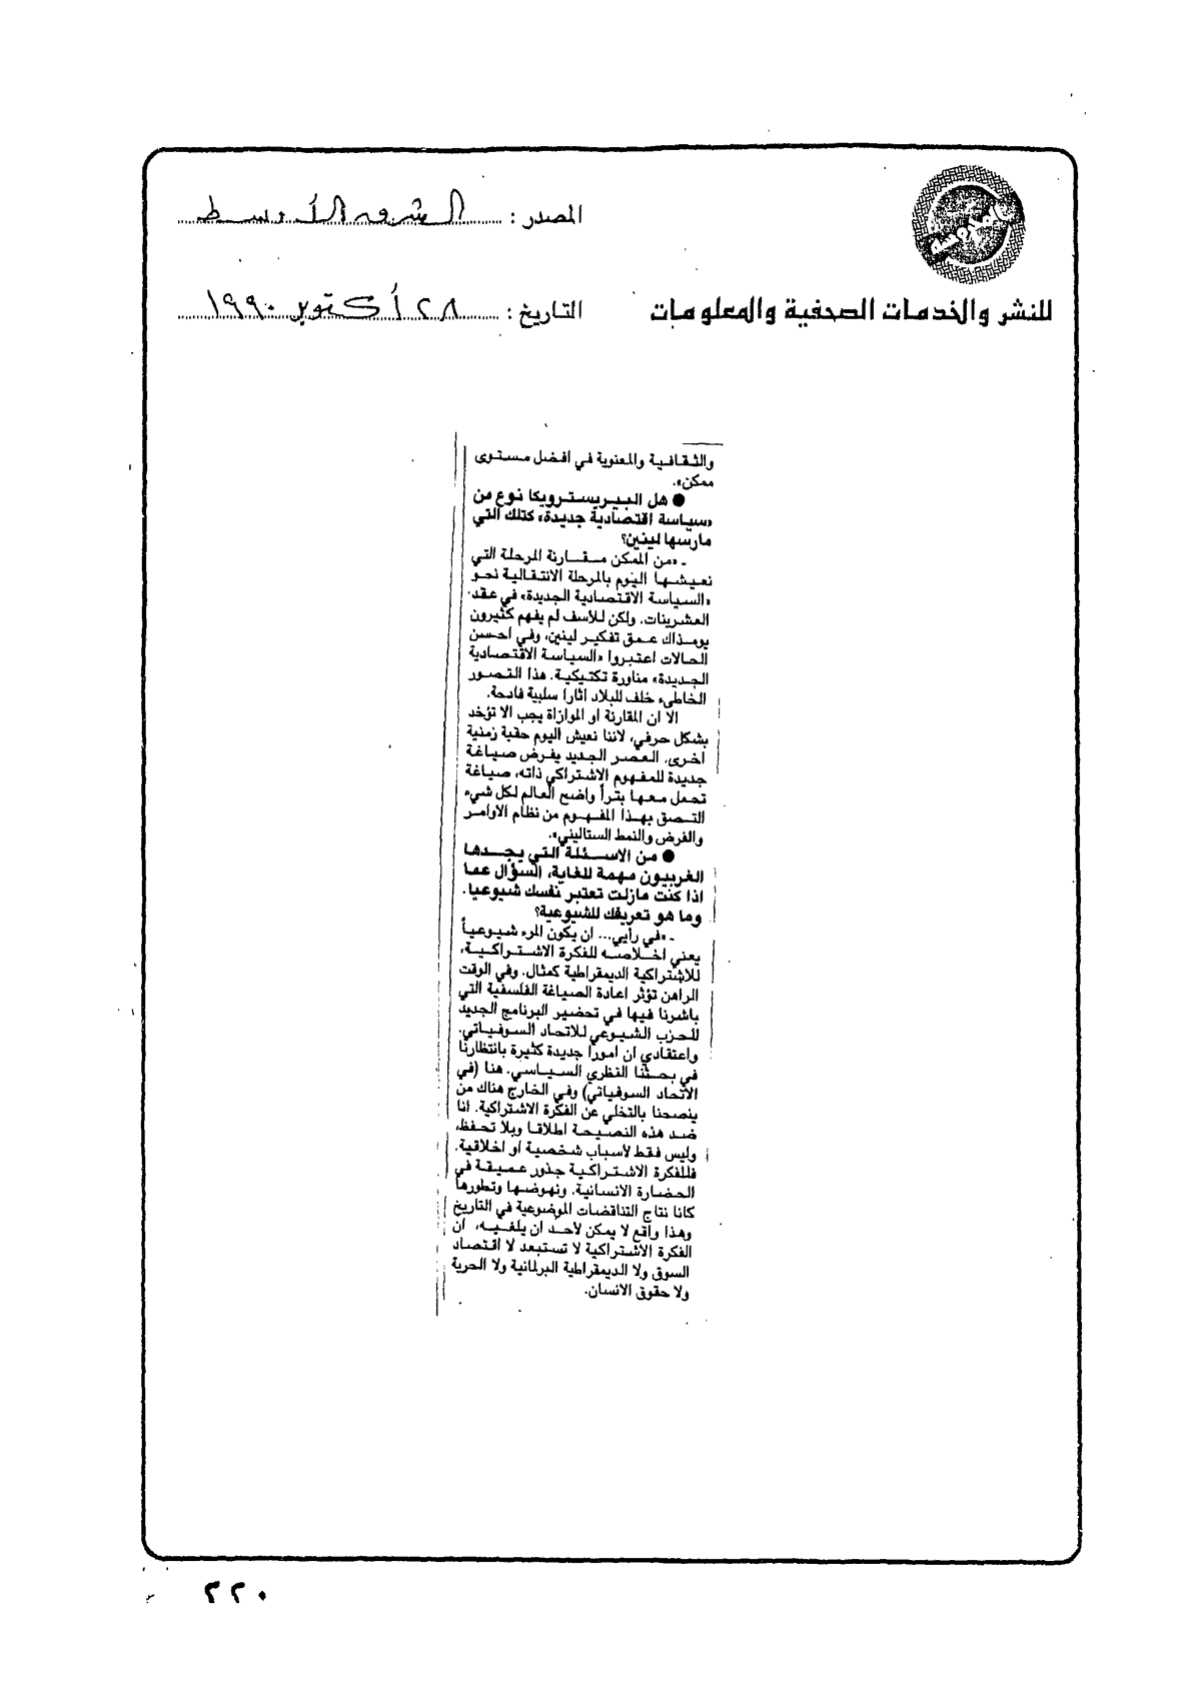 المصدر : الشرق الأوسط
للنشر والخدمات الصحفية والمعلومات
التاريخ : ٢٨ أكتوبر ١٩٩٠
والثقافية والمعنوية في افضل مستوى
ممكن».
● هل البيريسترويكا نوع من
«سياسة اقتصادية جديدة» كتلك التي
مارسها لينين؟
ـ «من الممكن مقارنة المرحلة التي
نعيشها اليوم بالمرحلة الانتقالية نحو
«السياسة الاقتصادية الجديدة» في عقد
العشرينات. ولكن للأسف لم يفهم كثيرون
يومذاك عمق تفكير لينين، وفي احسن
الحالات اعتبروا «السياسة الاقتصادية
الجديدة» مناورة تكتيكية. هذا التصور
الخاطيء خلف للبلاد اثارا سلبية فادحة.
الا ان المقارنة او الموازاة يجب الا تؤخد
بشكل حرفي، لاننا نعيش اليوم حقبة زمنية
اخرى. العصر الجديد يفرض صياغة
جديدة للمفهوم الاشتراكي ذاته، صياغة
تحمل معها بتراً واضح العالم لكل شيء
التصق بهذا المفهوم من نظام الاوامر
والفرض والنمط الستاليني».
● من الاسئلة التي يجدها
الغربيون مهمة للغاية، السؤال عما
اذا كنت مازلت تعتبر نفسك شيوعيا.
وما هو تعريفك للشيوعية؟
ـ «في رأيي... ان يكون المرء شيوعياً
يعني اخلاصه للفكرة الاشتراكية،
للاشتراكية الديمقراطية كمثال. وفي الوقت
الراهن تؤثر اعادة الصياغة الفلسفية التي
باشرنا فيها في تحضير البرنامج الجديد
للحزب الشيوعي للاتحاد السوفياتي.
واعتقادي ان امورا جديدة كثيرة بانتظارنا
في بحثنا النظري السياسي. هنا (في
الاتحاد السوفياتي) وفي الخارج هناك من
ينصحنا بالتخلي عن الفكرة الاشتراكية. انا
ضد هذه النصيحة اطلاقا وبلا تحفظ،
وليس فقط لأسباب شخصية او اخلاقية.
فللفكرة الاشتراكية جذور عميقة في
الحضارة الانسانية. ونهوضها وتطورها
كانا نتاج التناقضات الموضوعية في التاريخ
وهذا واقع لا يمكن لأحد ان يلغيه، ان
الفكرة الاشتراكية لا تستبعد لا اقتصاد
السوق ولا الديمقراطية البرلمانية ولا الحرية
ولا حقوق الانسان.
٢٢٠